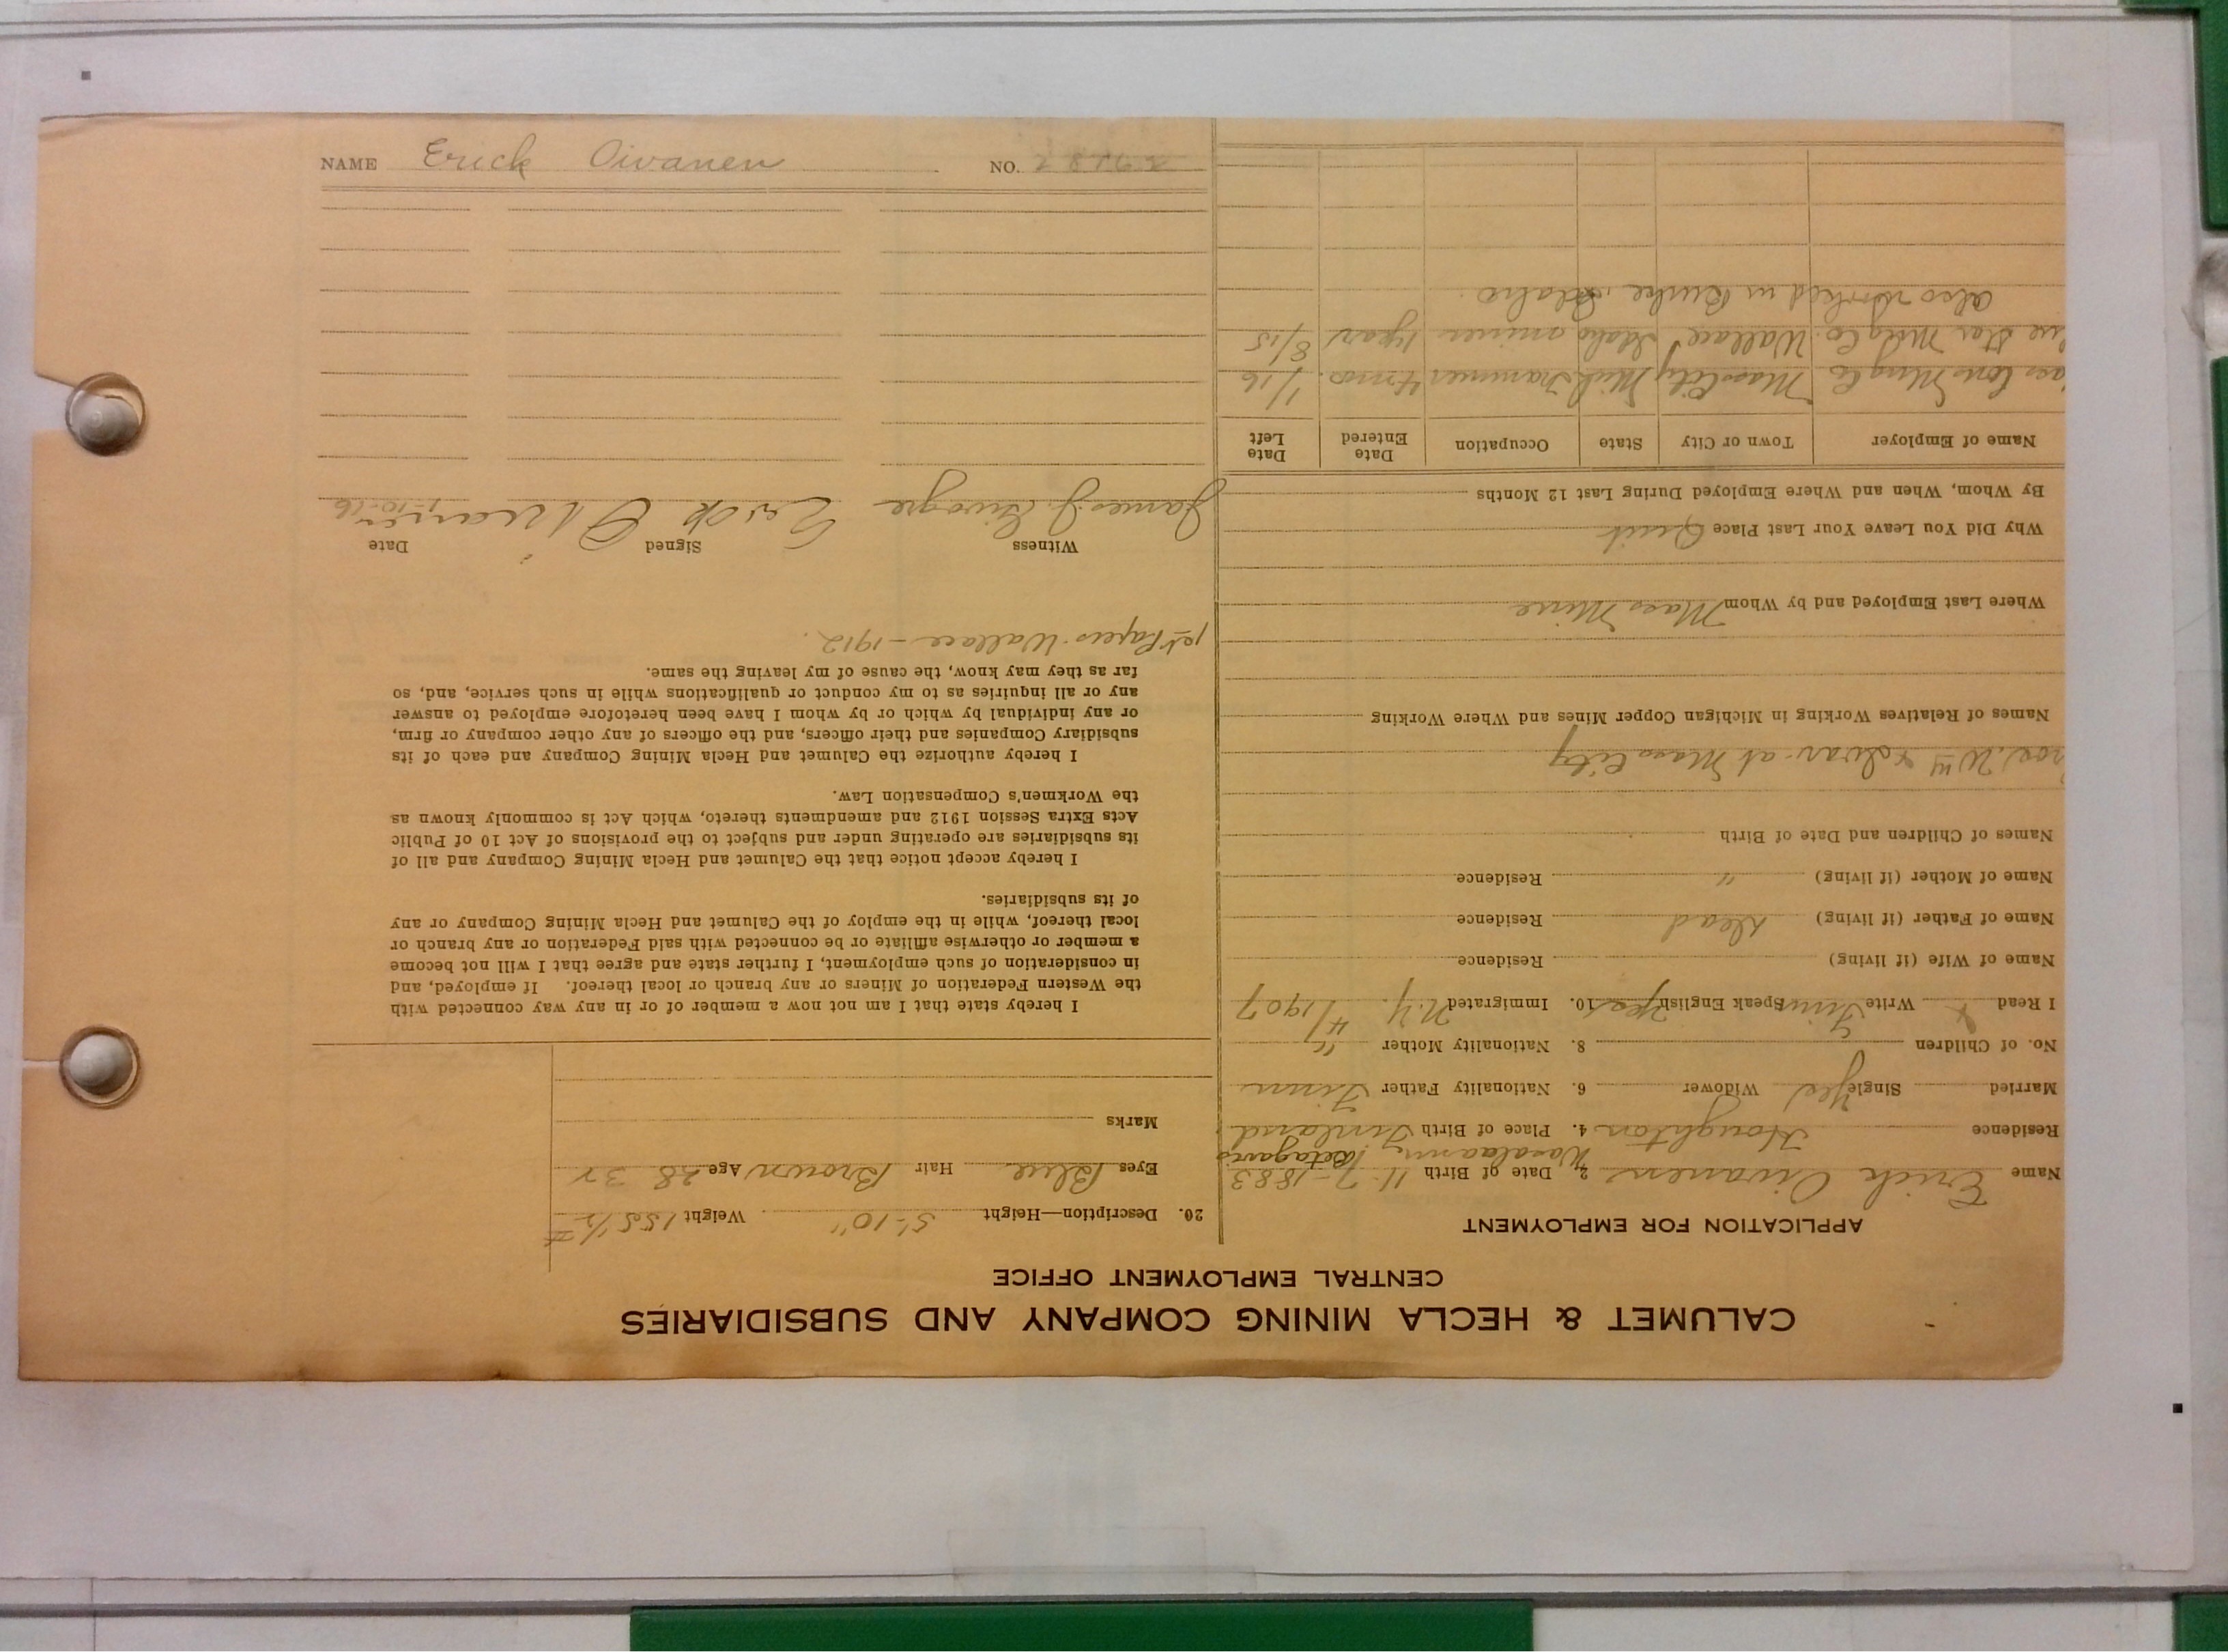 CALUMET & HECLA MINING COMPANY AND SUBSIDIARIES
CENTRAL EMPLOYMENT OFFICE
APPLICATION FOR EMPLOYMENT
Name Erick Oivanen 2. Date of Birth 11-7-1883
Residence Houghton 4. Place of Birth Finland
Married Single Yes Widower 6. Nationality Father Finn
No. of Children 8. Nationality Mother "
I Read Write Finn Speak English Yes 10. Immigrated N.Y. 4/1907
Name of Wife (if living) Residence
Name of Father (if living) Dead Residence
Name of Mother (if living) " Residence
Names of Children and Date of Birth
at Mass City
Names of Relatives Working in Michigan Copper Mines and Where Working
Where Last Employed and by Whom Mass Mine
Why Did You Leave Your Last Place Quit
By Whom, When and Where Employed During Last 12 Months
Name of Employer Town or City State Occupation Date Entered Date Left
Cons Mng Co Mass City Mich Trammer 4 mos. 1/16
Star Mng Co. Wallace Idaho miner 1 year 8/15
also worked in Burke, Idaho.
20. Description—Height 5'-10" Weight 155 1/2 #
Eyes Blue Hair Brown Age 28 32
Marks
I hereby state that I am not now a member of or in any way connected with
the Western Federation of Miners or any branch or local thereof. If employed, and
in consideration of such employment, I further state and agree that I will not become
a member or otherwise affiliate or be connected with said Federation or any branch or
local thereof, while in the employ of the Calumet and Hecla Mining Company or any
of its subsidiaries.
I hereby accept notice that the Calumet and Hecla Mining Company and all of
its subsidiaries are operating under and subject to the provisions of Act 10 of Public
Acts Extra Session 1912 and amendments thereto, which Act is commonly known as
the Workmen's Compensation Law.
I hereby authorize the Calumet and Hecla Mining Company and each of its
subsidiary Companies and their officers, and the officers of any other company or firm,
or any individual by which or by whom I have been heretofore employed to answer
any or all inquiries as to my conduct or qualifications while in such service, and, so
far as they may know, the cause of my leaving the same.
1st Papers-Wallace-1912.
Witness Signed Date
James J. Erick Oivanen 1-10-16
NAME Erick Oivanen NO.